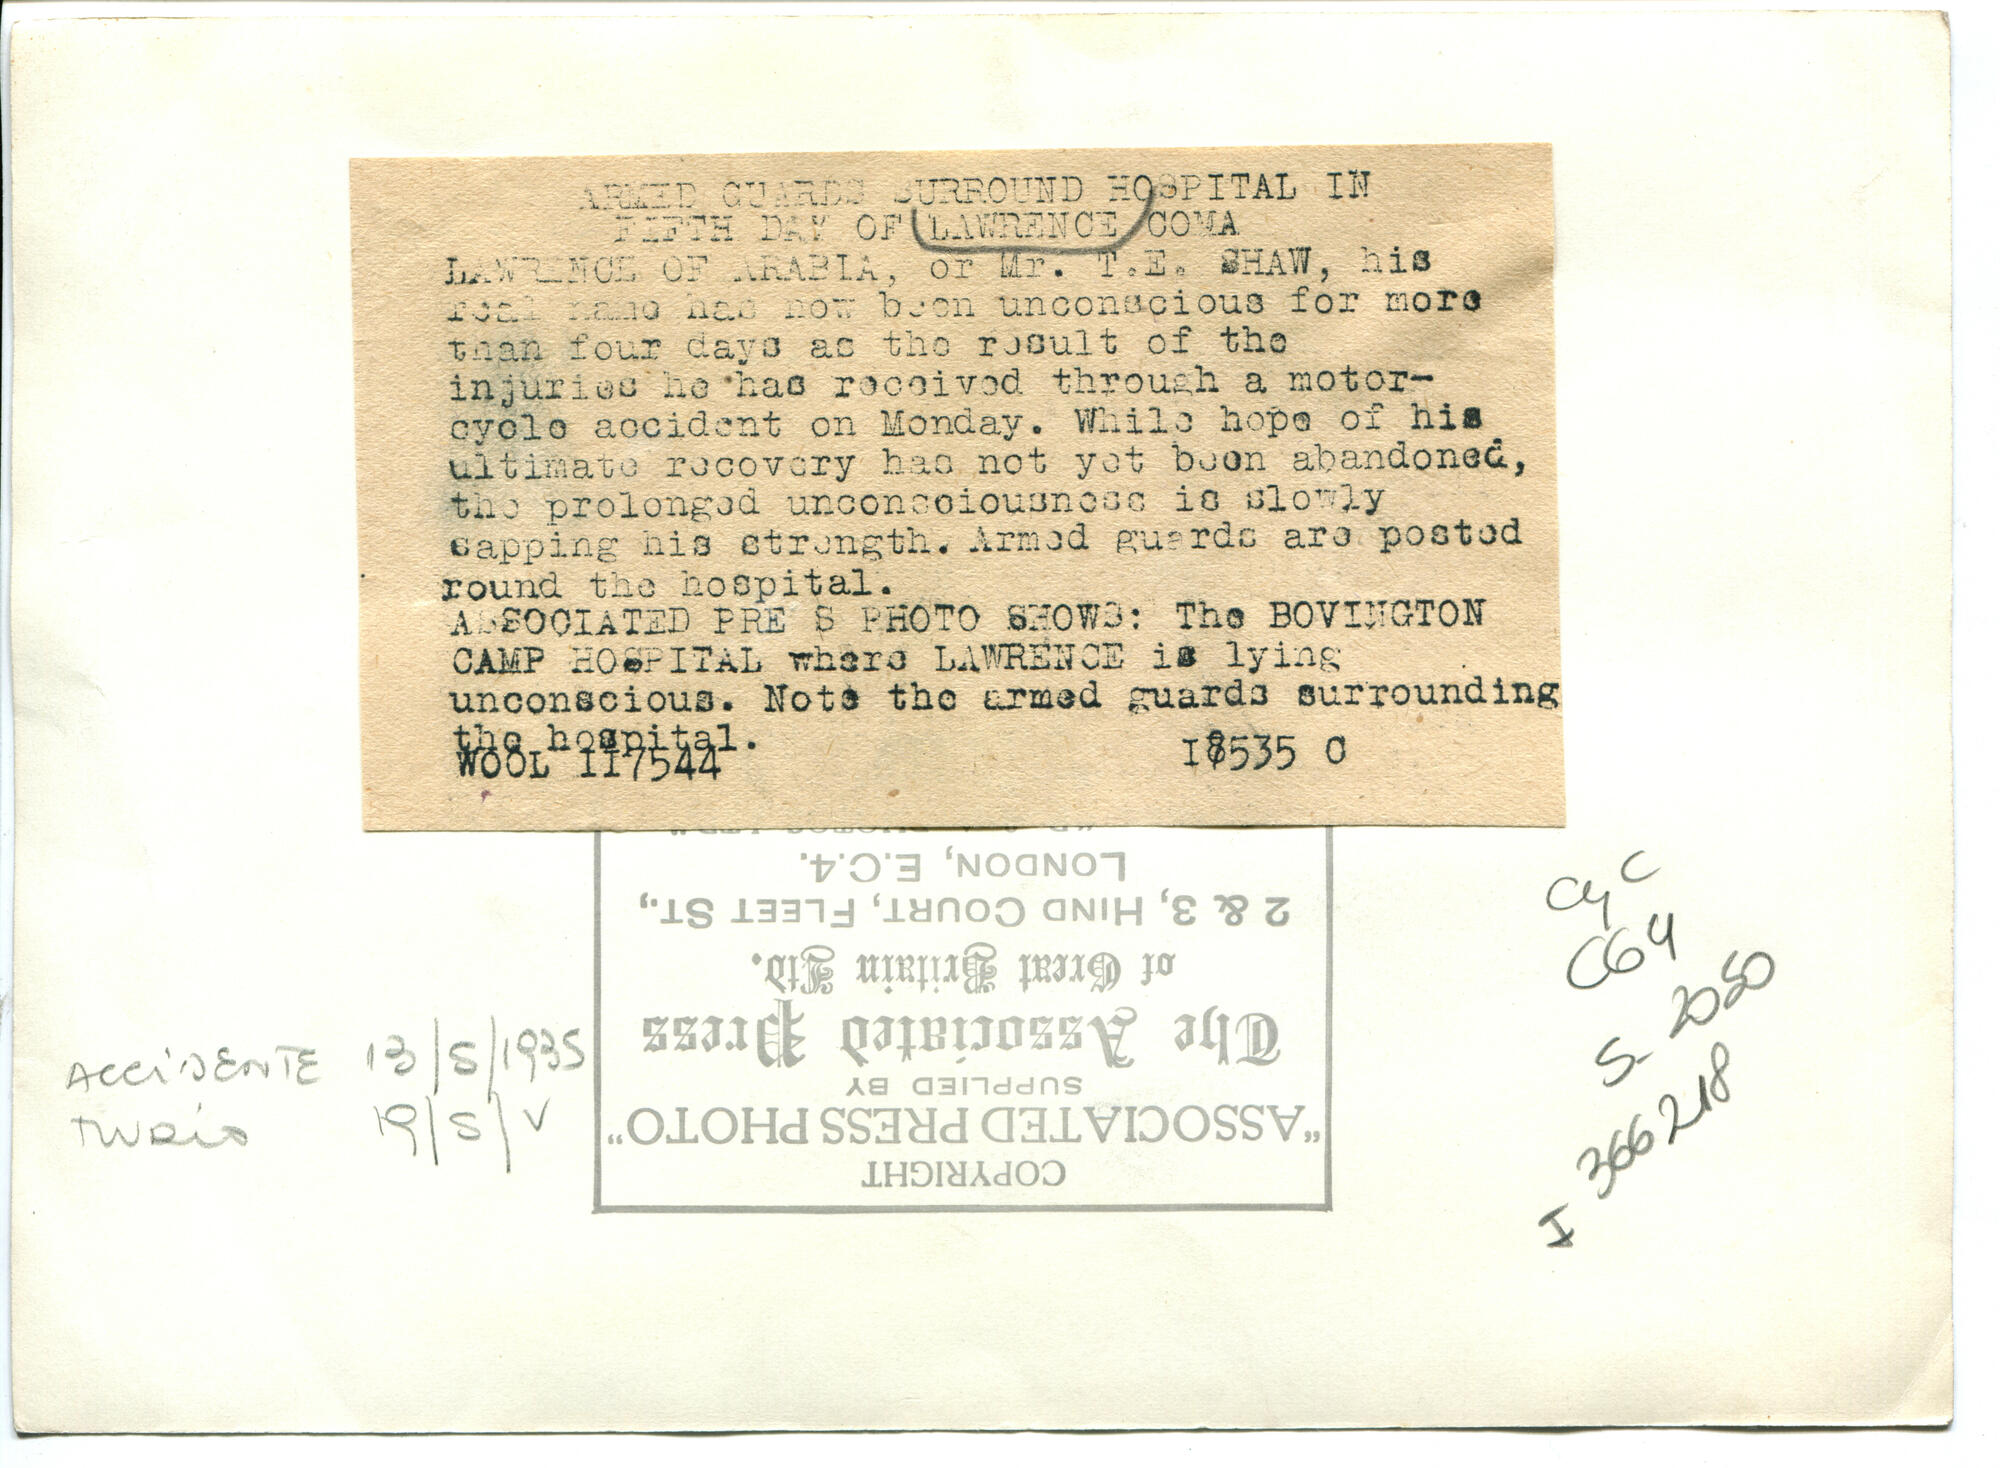 ARMED GUARDS SURROUND HOSPITAL IN
FIFTH DAY OF LAWRENCE COMA
LAWRENCE OF ARABIA, or Mr. T.E. SHAW, his
real name has now been unconscious for more
than four days as the result of the
injuries he has received through a motor-
cycle accident on Monday. While hope of his
ultimate recovery has not yet been abandoned,
the prolonged unconsciousness is slowly
sapping his strength. Armed guards are posted
round the hospital.
ASSOCIATED PRE S PHOTO SHOWS: The BOVINGTON
CAMP HOSPITAL where LAWRENCE is lying
unconscious. Note the armed guards surrounding
the hospital.
WOOL 117544 I8535 C
COPYRIGHT
"ASSOCIATED PRESS PHOTO"
SUPPLIED BY
The Associated Press
of Great Britain Ltd.
2 & 3, HIND COURT, FLEET ST.,
LONDON, E.C.4.
ACCIDENTE 13/5/1935
MURIÓ 19/5/V
CyC
C64
S-2050
I 366218